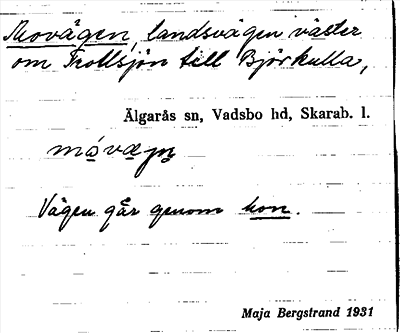 Movägen, landsvägen väster
om Trollsjön till Björkulla,
Älgarås sn, Vadsbo hd, Skarab. l.
Vägen går genom
Maja Bergstrand 1931